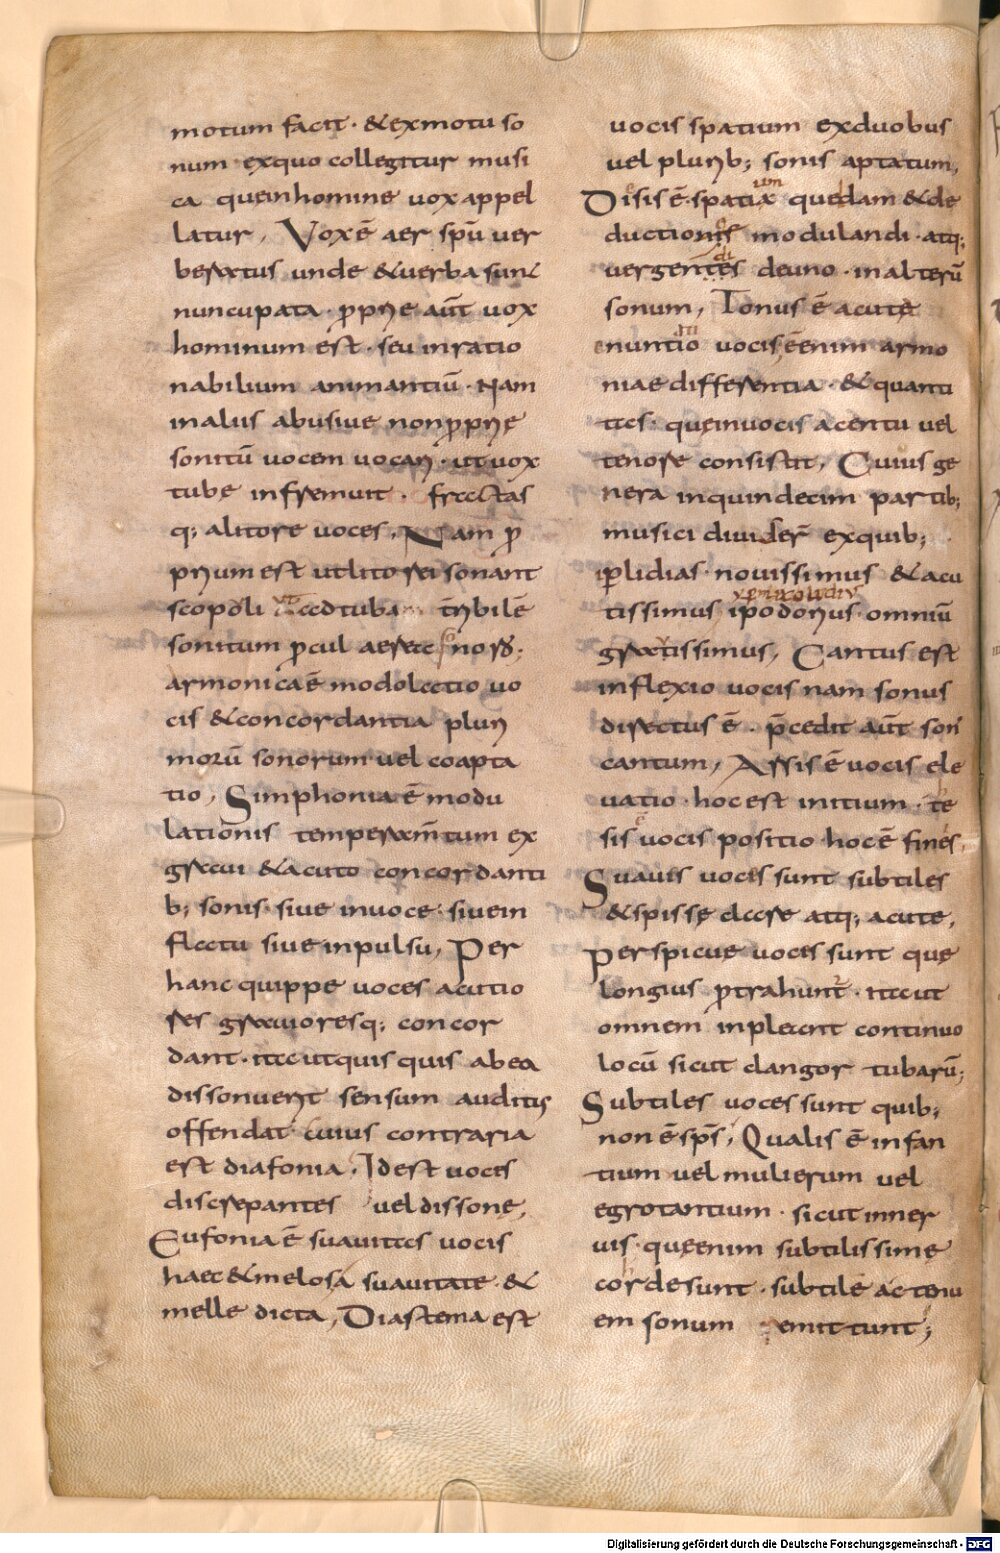 motum facit · & exmotu so
num exquo collegitur musi
ca que inhomine uox appel
latur, Vox ē aer sp̄u uer
beratus unde & uerba sunt
nuncupata · ꝓprie aūt uox
hominum est · seu inratio
nabilium animantiū · Nam
inaliis abusiue non ꝓprie
sonitū uocem uocari · ut uox
tube infremuit · fractas
q; alitore uoces, Nam ꝓ
prium est ut litorei sonant
scopoli tuba
sonitum ꝓcul aere
armonica ē modolatio uo
cis & concordantia pluri
morū sonorum uel coapta
tio, Simphonia ē modu
lationis temperam̄tum ex
graui & acuto concordanti
b; sonis · siue inuoce · siue in
flatu siue inpulsu, Per
hanc quippe uoces acutio
res grauioresq; concor
dant · ita ut quis quis ab ea
dissonuerit sensum auditus
offendat cuius contraria
est diafonia · Id est uoces
discrepantes uel dissone,
Eufonia ē suauitas uocis
haec & melosa suauitate · &
melle dicta, Diastema est
uocis spatium exduobus
uel plurib; sonis aptatum,
Disis ē · spatia quedam & de
ductiones modulandi · atq;
uergentes deuno · inalterū
sonum, Tonus ē acute
enuntio uocis ē enim armo
niae differentia · & quanti
tas · que inuocis acentu uel
tenore consistit, Cuius ge
nera inquindecim partib;
musici diuider̄ exquib;
iꝑlidias nouissimus & acu
tissimus ipodorius omniū
grauissimus, Cantus est
inflexio uocis nam sonus
directus ē · p̄cedit aūt son
cantum, Arsis ē uocis ele
uatio · hoc est initium · te
sis uocis positio · hoc ē fines,
Suaues uoces sunt subtiles
& spisse clare atq; acute,
Perspicue uoces sunt que
longius ꝓtrahunt · ita ut
omnem inpleant continuo
locū sicut clangor tubarū;
Subtiles uoces sunt quib;
non ē sp̄s, Qualis ē infan
tium uel mulierum uel
egrotantium · sicut inner
uis · que enim subtilissime
corde sunt · subtile ac tenu
em sonum emittunt;
Digitalisierung gefördert durch die Deutsche Forschungsgemeinschaft - DFG